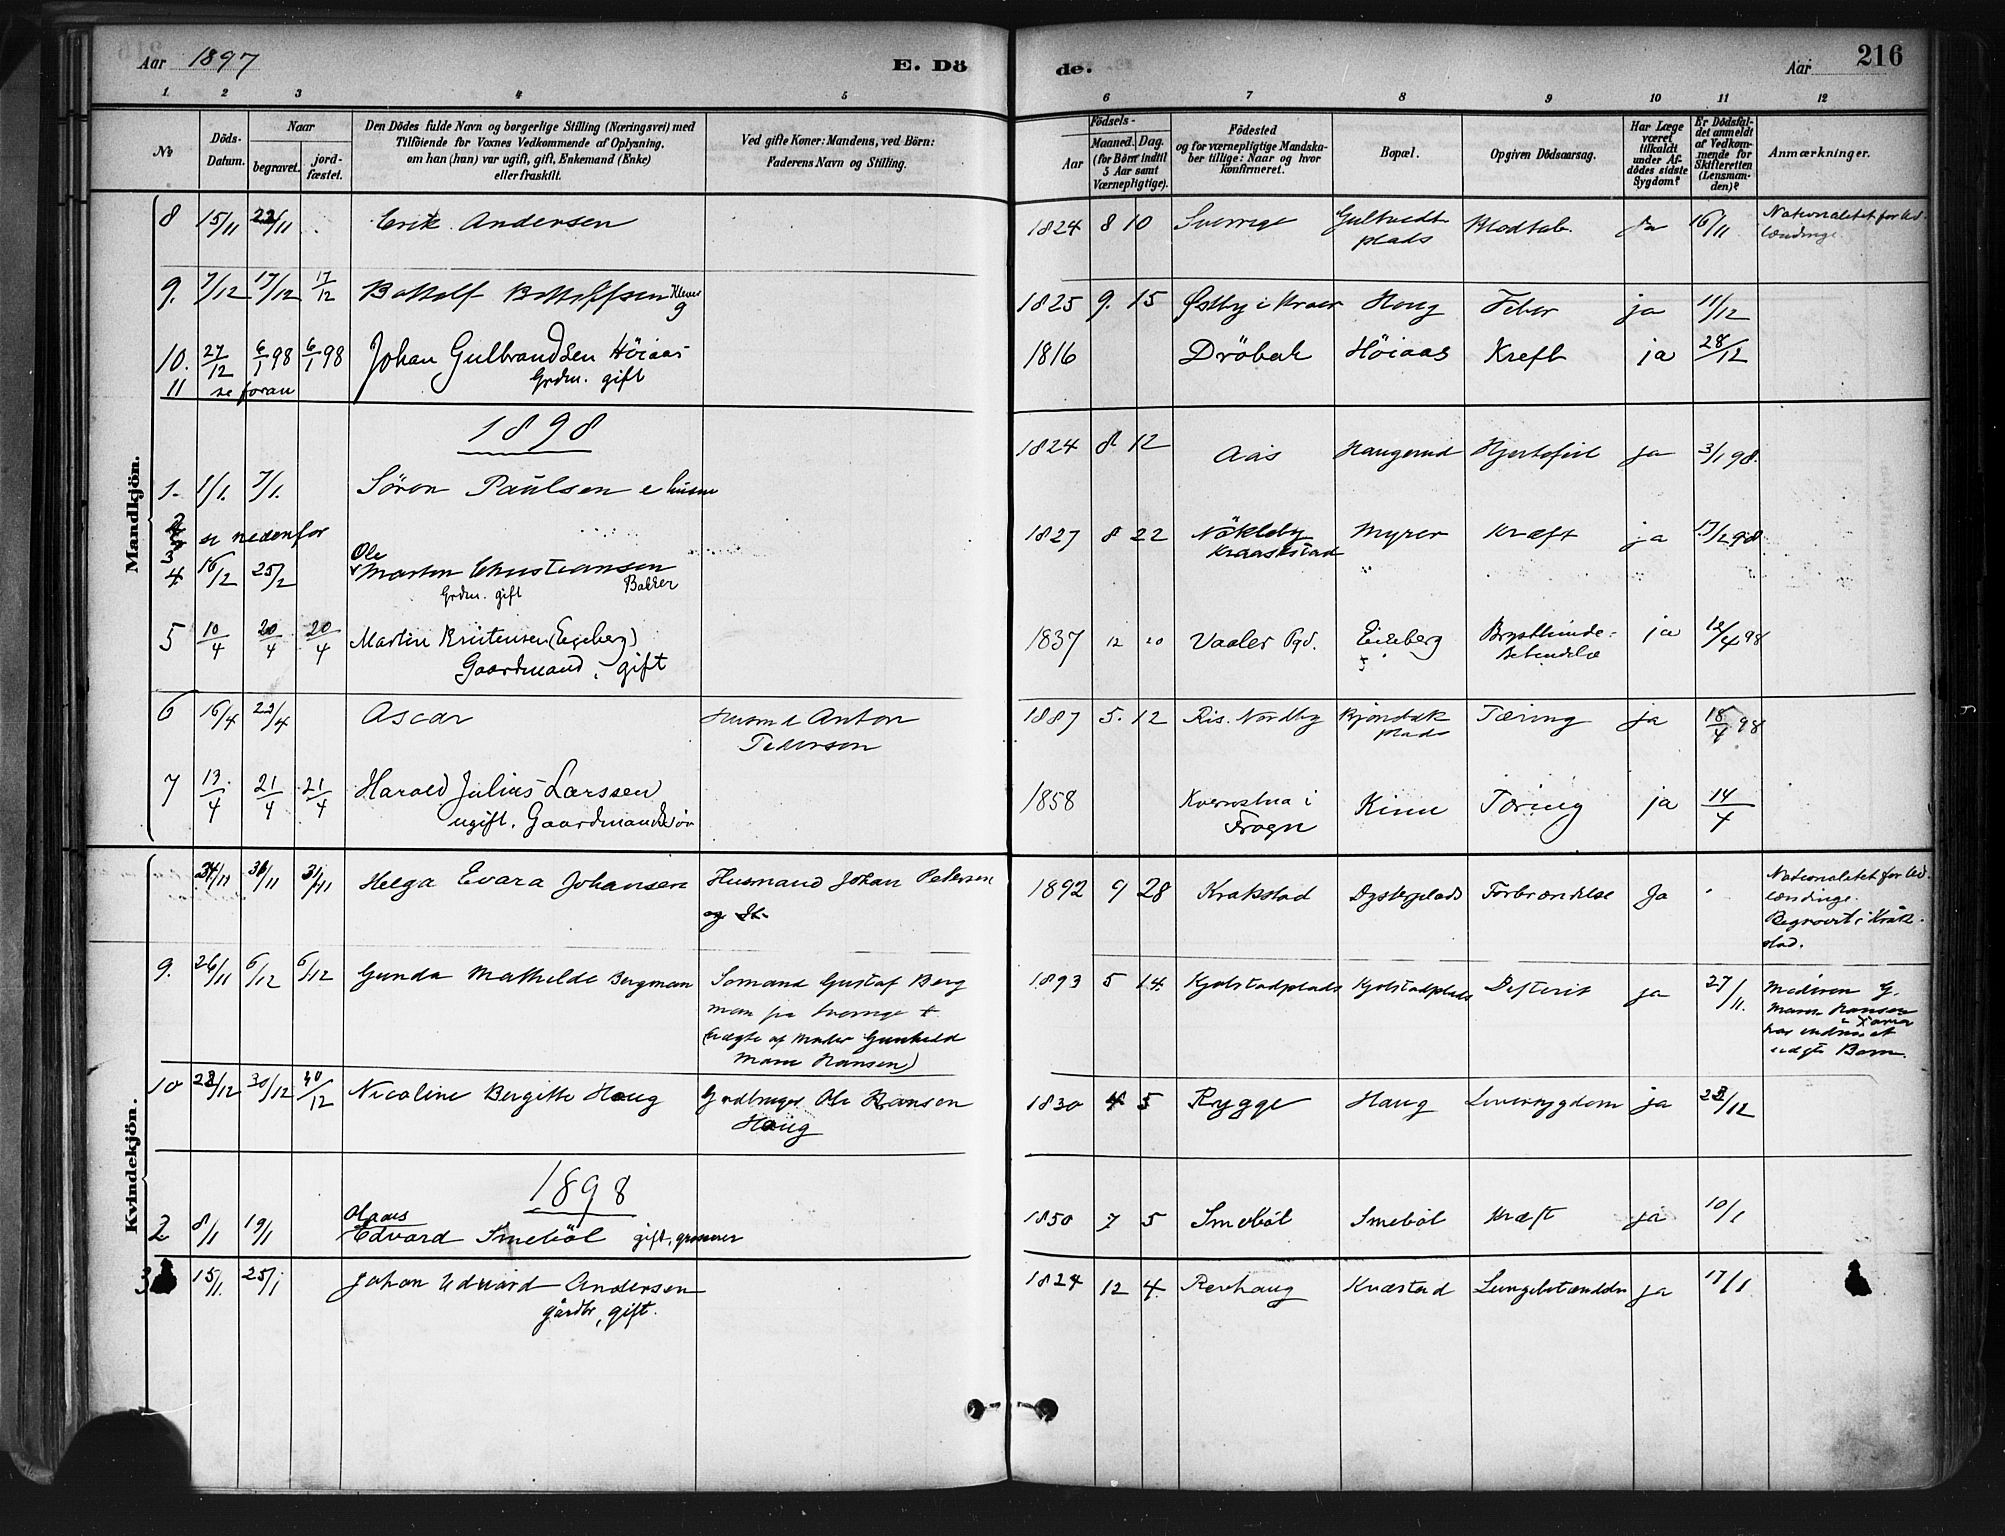 Aar 1897
E. Dö
de.
Aar
216
1 2 3 4 5 6 7 8 9 10 11 12
№
Döds-
Datum.
Naar
begravet.
jord-
fæstet.
Den Dödes fulde Navn og borgerlige Stilling (Næringsvei) med
Tilföiende for Voxnes Vedkommende af Oplysning,
om han (hun) var ugift, gift, Enkemand (Enke)
eller fraskilt.
Ved gifte Koner: Mandens, ved Börn:
Faderens Navn og Stilling.
Födsels-
Aar
Maaned. Dag.
(for Börn indtil
5 Aar samt
Værnepligtige).
Födested
og for værnepligtige Mandska-
ber tillige: Naar og hvor
konfirmeret.
Bopæl.
Opgiven Dödsaarsag.
Har Læge
været
tilkaldt
under Af-
dödes sidste
Sygdom?
Er Dödsfal-
det anmeldt
af Vedkom-
mende for
Skifteretten
(Lensman-
den)?
Anmærkninger.
Mandkjön.
8 15/11 22/11 Erik Andersen 1824 8 10 Sverrige Gultvedt Blodtab Ja 16/11 Nationalitet for Ud-
plads lændinge
9. 7/12 17/12 17/12 Bottolf Bottolfsen 1825 9. 15 Østby i Kraer Haug Feber ja 11/12
10. 27/12 6/1 98 6/1 98 Johan Gulbrandsen Höiaas 1816 Dröbak Höiaas Kreft ja 28/12
Grdm. gift
11 se foran
1898
1. 1/1. 7/1. Sören Paulsen e husm 1824 8 12 Aas Haugerud Hjertefeil ja 3/1 98.
2 se nedenfor
3
4 16/2 25/2 Ole Martin Christiansen 1827 8 22 Nökleby Myrer Kræft ja 17/2 98
Kraakstad
Grdm. gift Bakker
5 10/4 20/4 20/4 Martin Kristensen (Egeberg) 1837 12 20 Vaaler Pgd. Eikeberg Brysthinde- ja 12/4 98
Gaardmand, gift betændelse
6 16/4 23/4 Ascar Husmd Anton 1887 5. 12 Ris. Nordby plads Tæring ja 18/4 98
Pedersen
7 13/4 21/4 21/4 Harald Julius Larssen 1858 Kvernstua i Kinn Tæring ja 14/4
ugift. Gaardmandssön Frogn
Kvindekjön.
24/11 31/11 31/11 Helga Evara Johansen Husmand Johan Petersen 1892 9 28 Krakstad Dysterplads Forbrændelse Ja Nationalitet for Ud-
og lændinge
Begravet i Kråk-
stad.
9. 26/11 6/12 6/12 Gunda Mathilde Bergman Sømand Gustaf Berg 1893 5 14. Kjølstadplads Kjølstadplads Defterit ja 27/11. Moderen G.
man fra Sverrige Marie Hansen
(Uægte af Moder Gunhild har endnu et
Marie Hansen) uægte Barn.
10 28/12 30/12 30/12 Nicoline Bergitte Haug Grdbruger Ole Hansen 1830 4 5 Rygge Haug Leversygdom ja 28/12
Haug
1898
2 8/1 19/1 Olaus Edvard Smeböl gift, 1850 7 5 Smeböl Smeböl Kræft ja 10/1
3 15/1. 25/1 Johan Edvard Andersen 1824 12 4. Revhaug Kvæstad ja 17/1
gårdbr, gift.